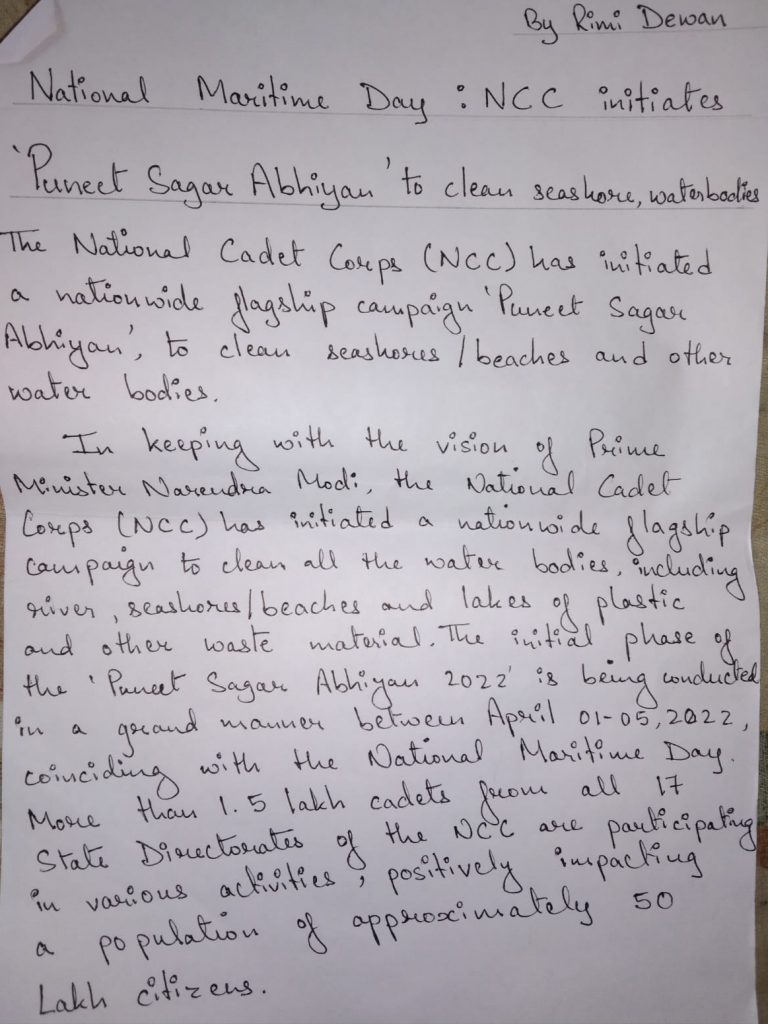 By Rimi Dewan
National Maritime Day : NCC initiates
'Puneet Sagar Abhiyan' to clean seashore, waterbodies
The National Cadet Corps (NCC) has initiated
a nationwide flagship campaign 'Puneet Sagar
Abhiyan', to clean seashores/beaches and other
water bodies.
In keeping with the vision of Prime
Minister Narendra Modi, the National Cadet
Corps (NCC) has initiated a nationwide flagship
campaign to clean all the water bodies, including
river, seashores/beaches and lakes of plastic
and other waste material. The initial phase of
the 'Puneet Sagar Abhiyan 2022' is being conducted
in a grand manner between April 01-05, 2022,
coinciding with the National Maritime Day.
More than 1.5 lakh cadets from all 17
State Directorates of the NCC are participating
in various activities, positively impacting
a population of approximately 50
Lakh citizens.